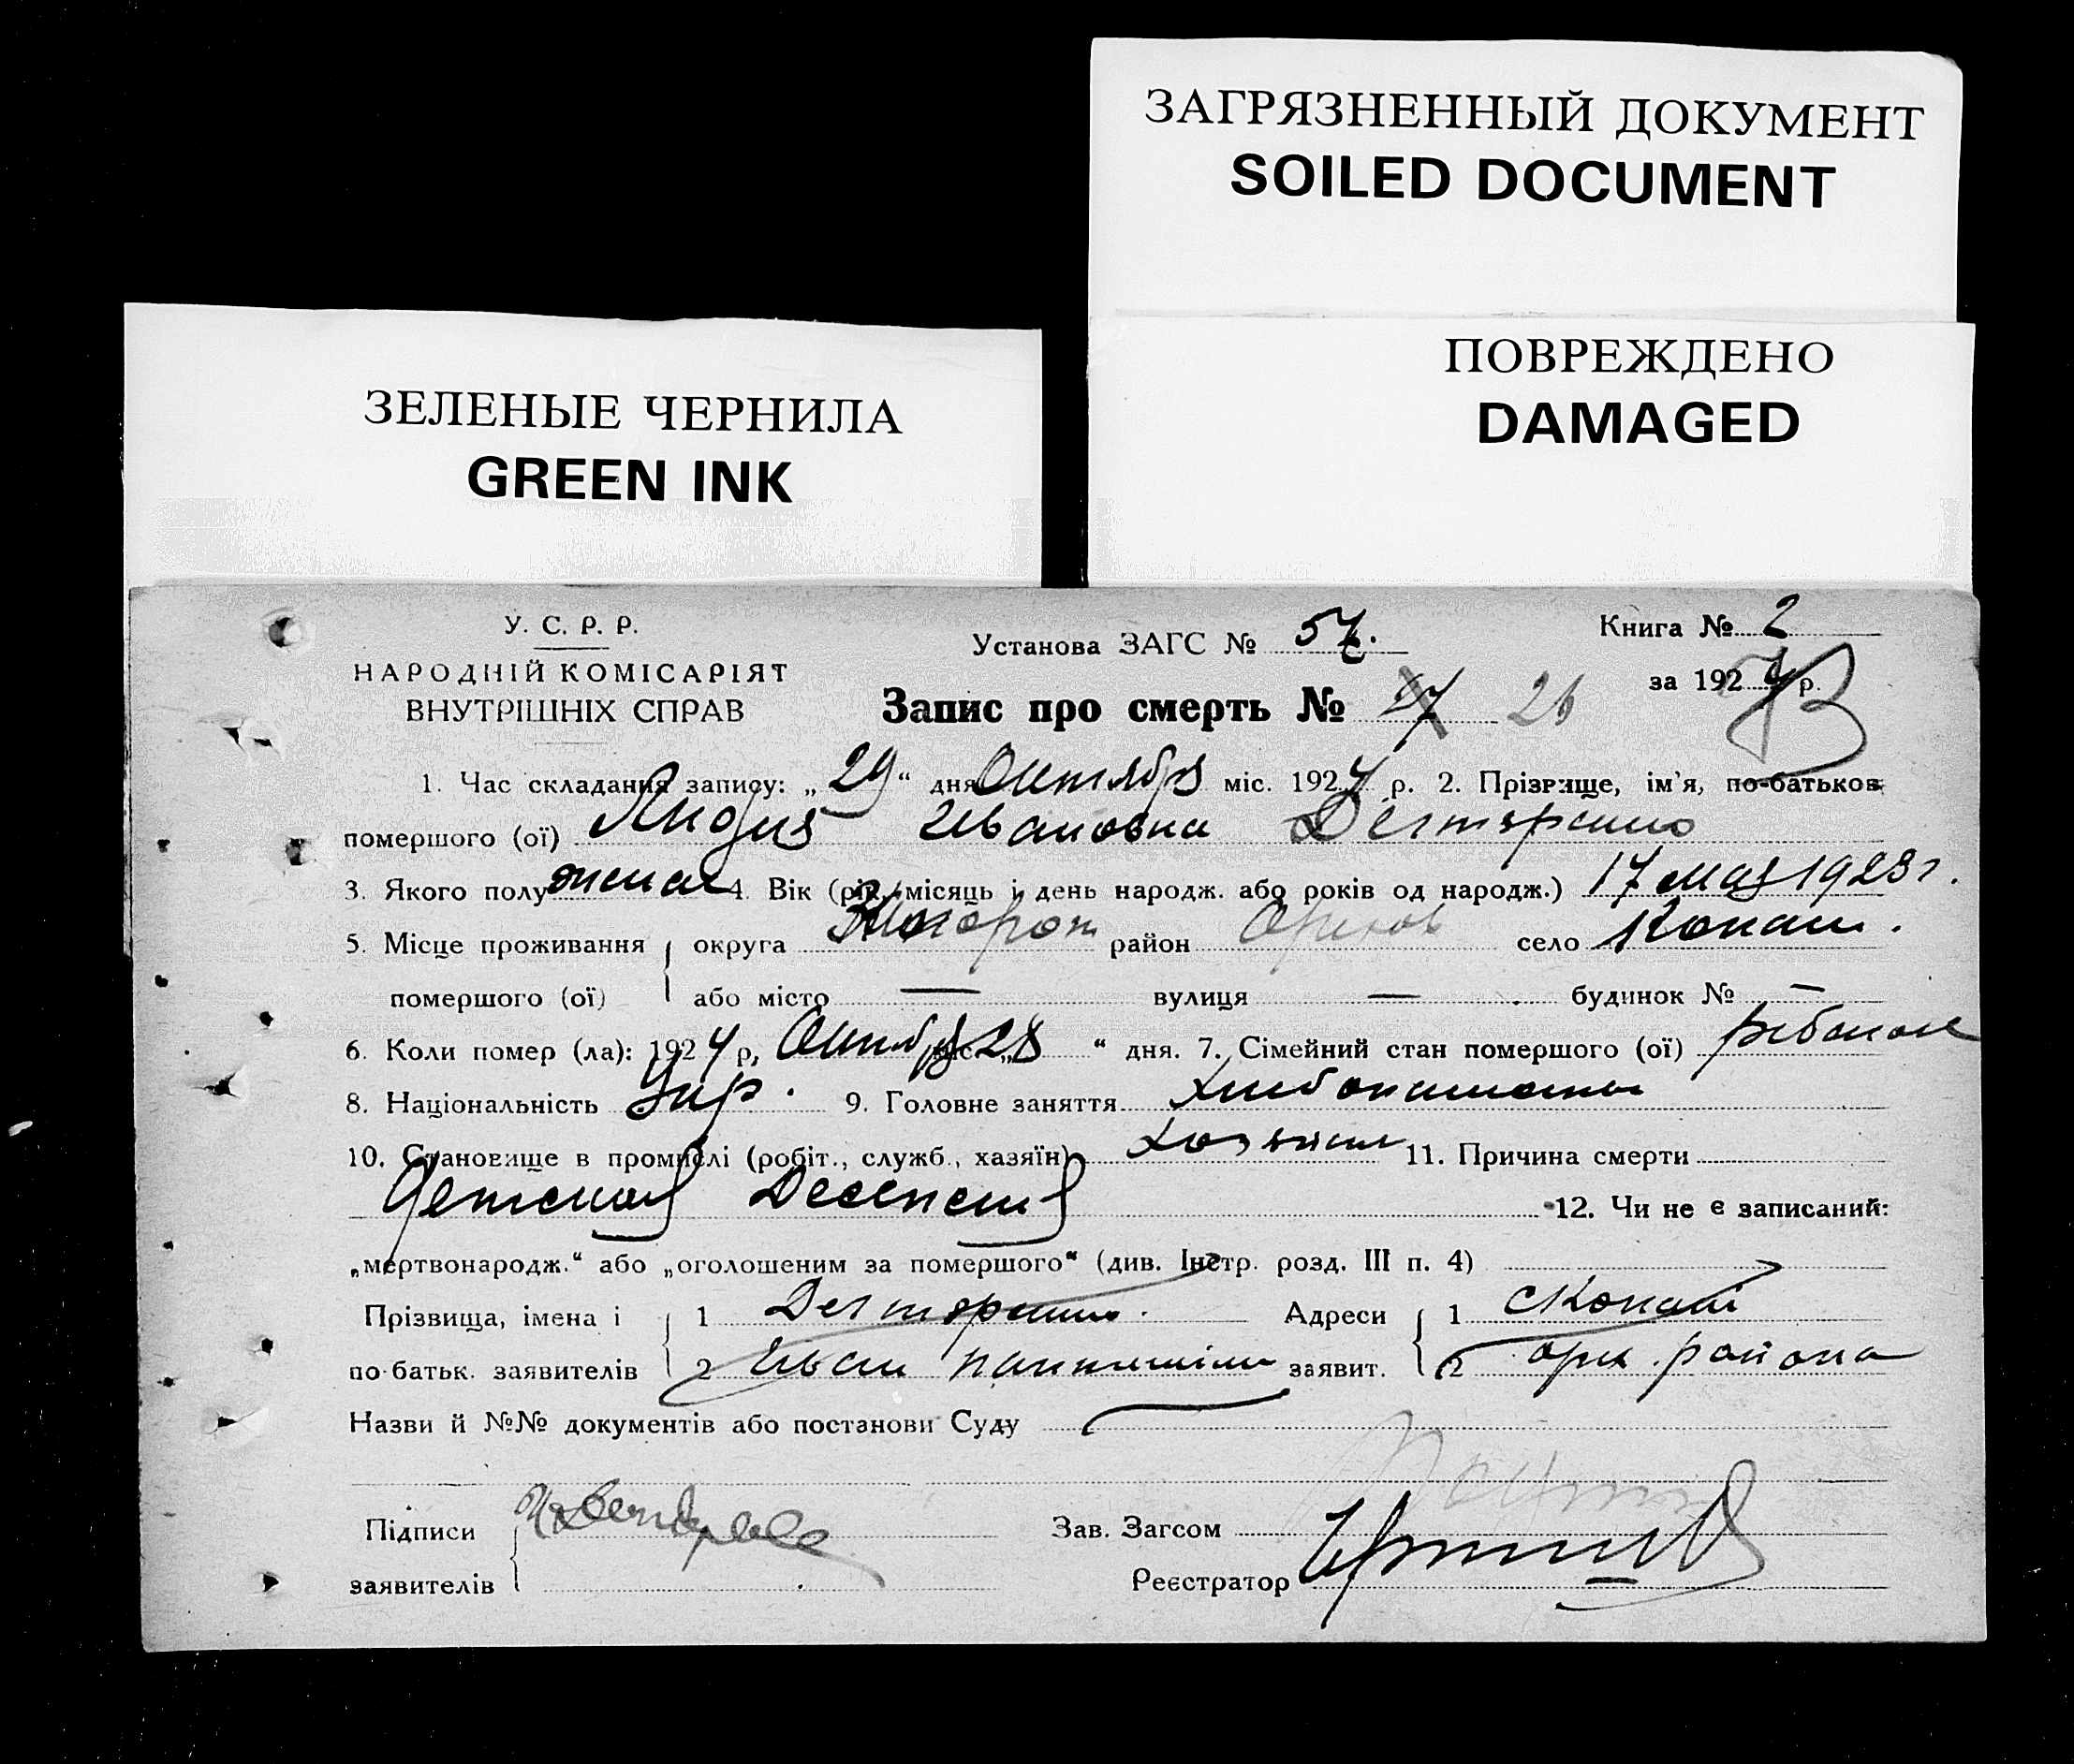 ЗАГРЯЗНЕННЫЙ ДОКУМЕНТ
SOILED DOCUMENT
ПОВРЕЖДЕНО
DAMAGED
ЗЕЛЕНЫЕ ЧЕРНИЛА
GREEN INK
У. С. Р. Р.
НАРОДНІЙ КОМІСАРІЯТ
ВНУТРІШНІХ СПРАВ
Установа ЗАГС №
Книга № 2
за 1924 р.
Запис про смерть № 26
1. Час складання запису: „29“ дня Октября міс. 1924 р. 2. Прізвище, ім'я, по-батьков.
помершого (ої) Ивановна
3. Якого полу женск 4. Вік (рік, місяць і день народж. або років од народж.) 17 мая 1923 г.
5. Місце проживання округа район Орехов село Копани.
помершого (ої) або місто — вулиця — будинок № —
6. Коли помер (ла): 1924 р, Октября міс. „28“ дня. 7. Сімейний стан помершого (ої)
8. Національність Укр. 9. Головне заняття
10. Становище в промислі (робіт., служб., хазяїн) 11. Причина смерти
Детская 12. Чи не є записаний:
„мертвонародж.“ або „оголошеним за помершого“ (див. Інстр. розд. III п. 4)
Прізвища, імена і 1 Адреси 1 с Копані
по-батьк. заявителів 2 Иван заявит. 2 орех. района
Назви й №№ документів або постанови Суду
Підписи Зав. Загсом
заявителів Реєстратор